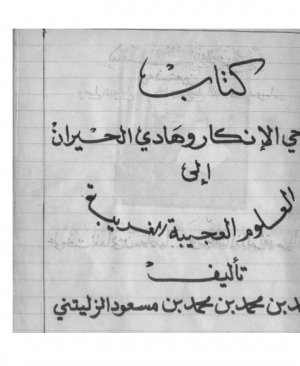 كتاب
حي الإنكار وهادي الحيران
إلى
العلوم العجيبة الغريبة
تأليف
د بن محمد بن محمد بن مسعود الزليتني